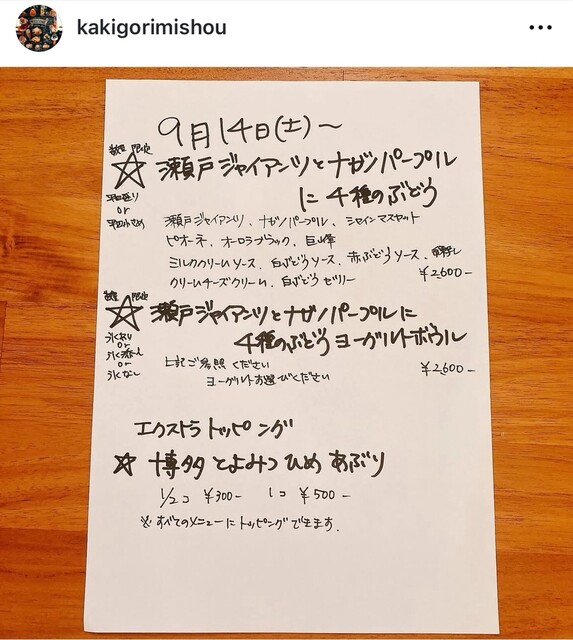 kakigorimishou
9月14日(土)～
数量 限定
瀬戸ジャイアンツとナガノパープル
に 4種のぶどう
平日盛り
or
瀬戸ジャイアンツ、ナガノパープル、シャインマスカット
ピオーネ、オーロラブラック、巨峰
ミルククリームソース、白ぶどうソース、赤ぶどうソース
クリームチーズクリーム、白ぶどうゼリー
¥2,600-
数量 限定
瀬戸ジャイアンツとナガノパープルに
4種のぶどうヨーグルトボウル
氷あり
or
氷添え
or
氷なし
上記ご参照ください
ヨーグルトお選びください
¥2,600-
エクストラトッピング
☆ 博多とよみつひめ あぶり
1/2コ ¥300- 1コ ¥500-
※すべてのメニューにトッピングできます.